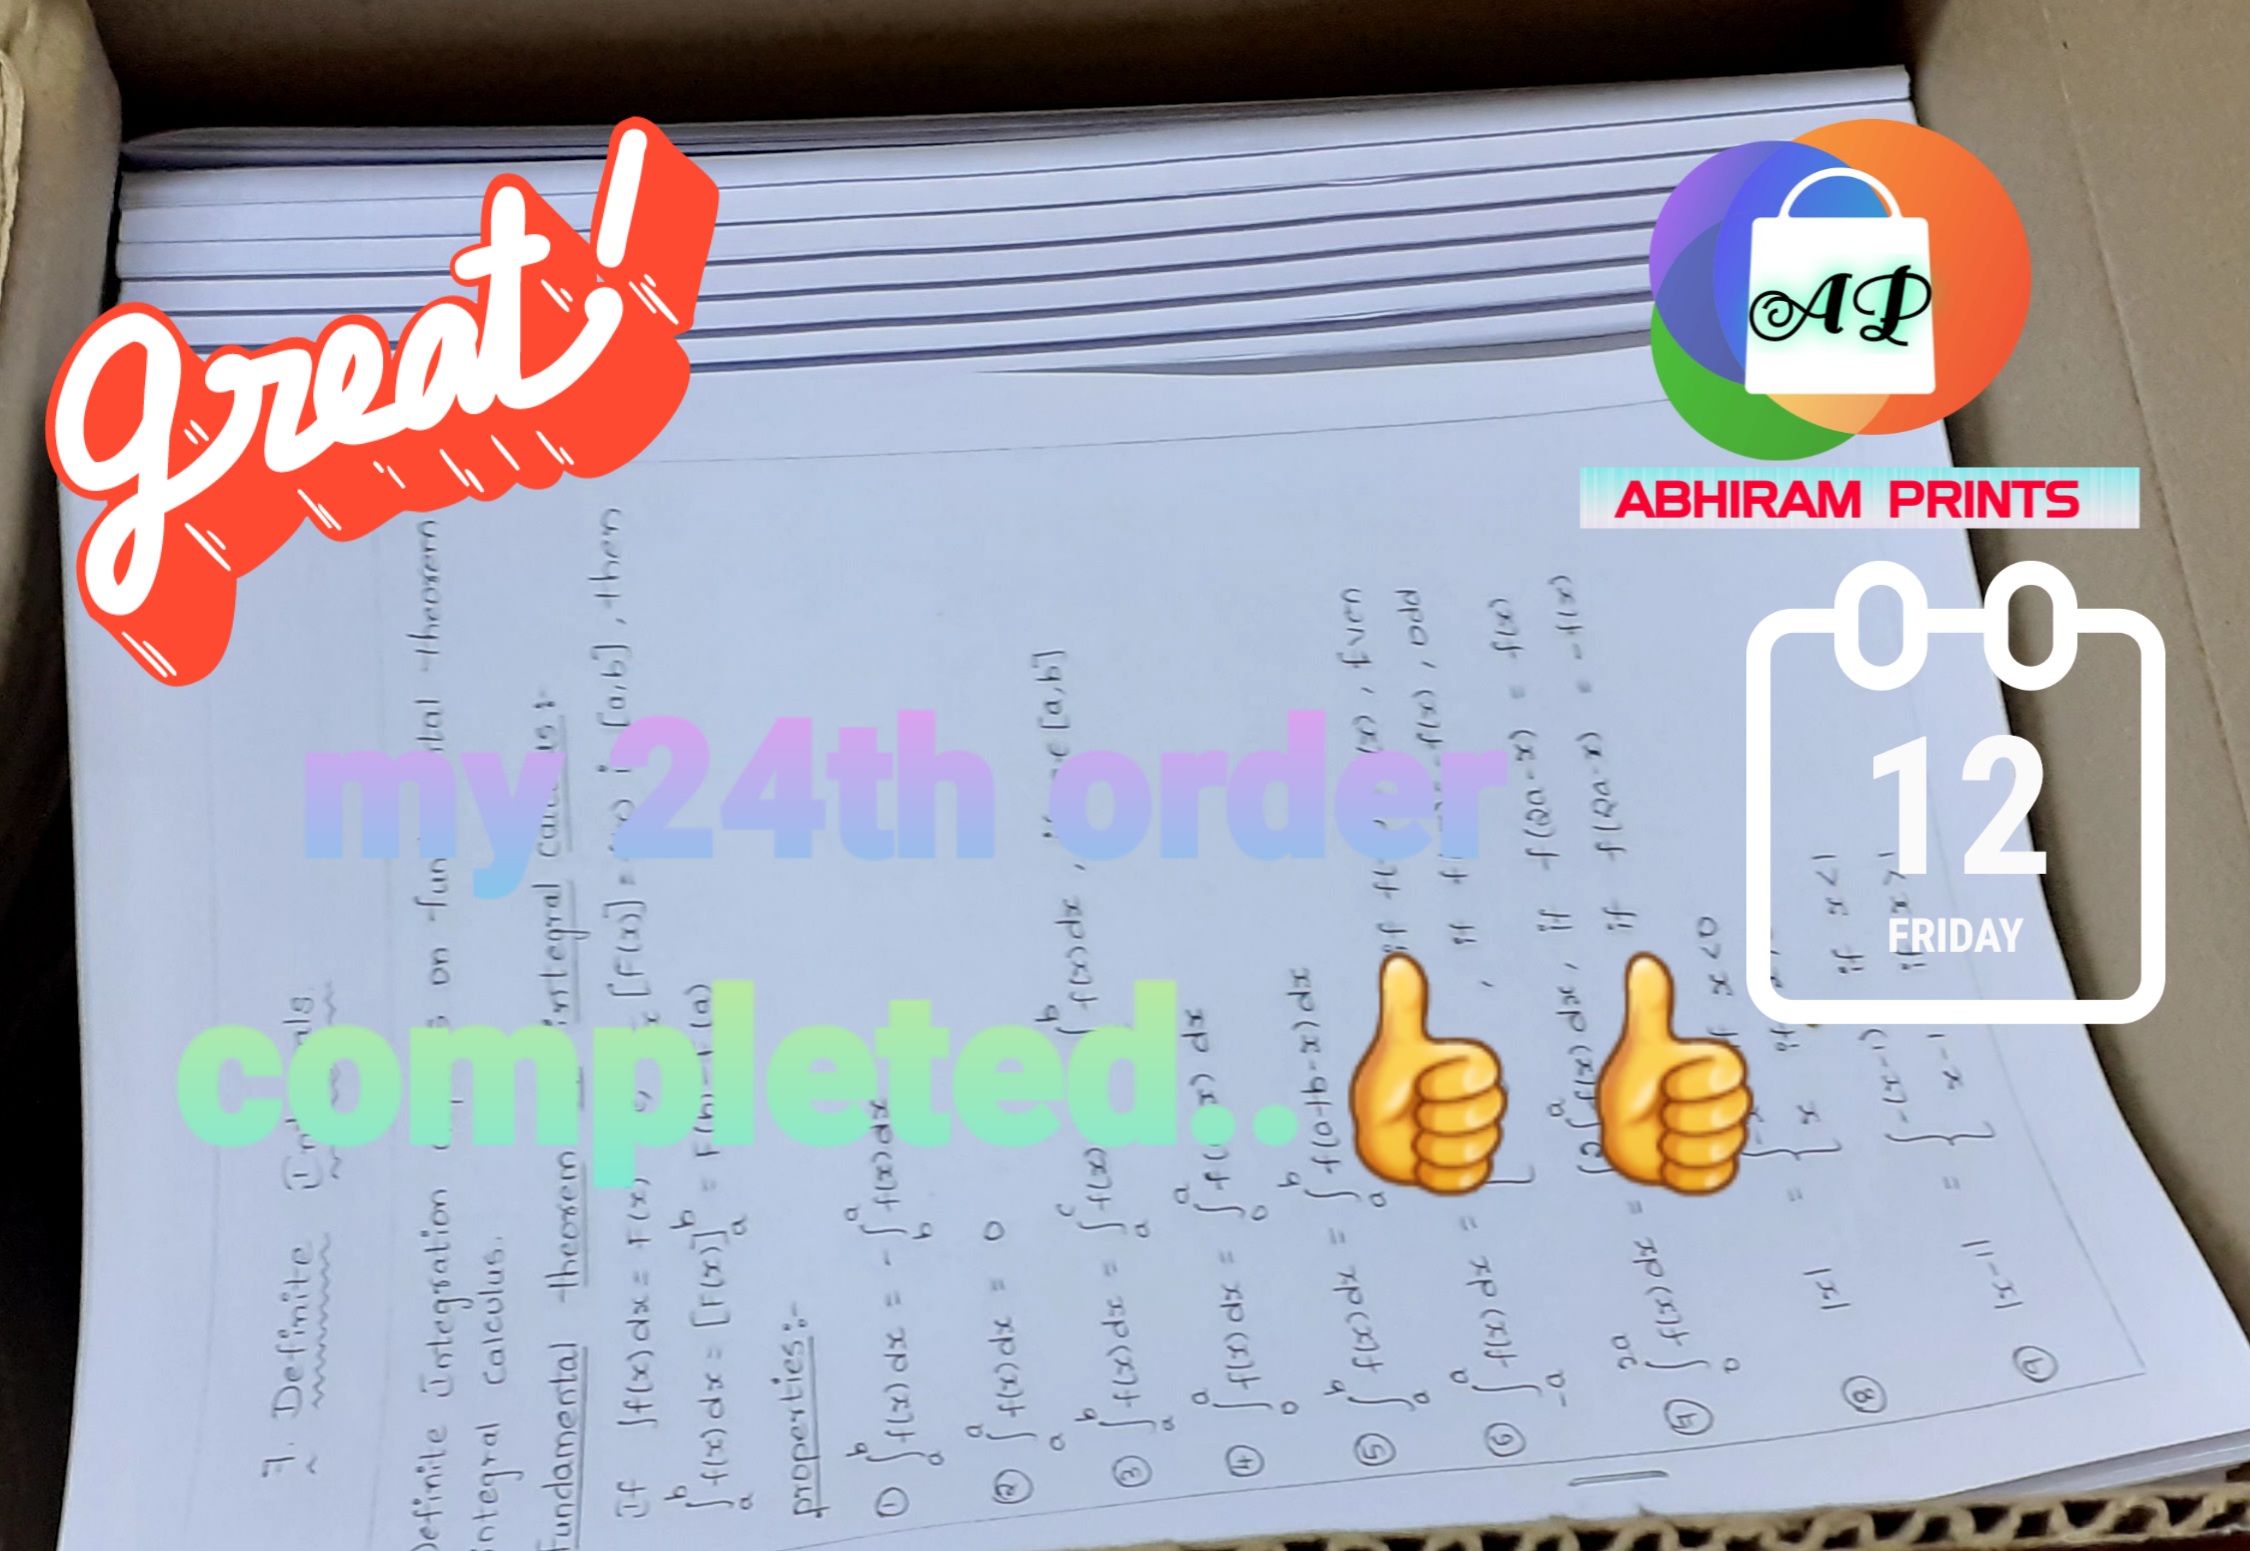 great!
AP
ABHIRAM PRINTS
12
FRIDAY
my 24th order
completed..
7. Definite
Definite Integration on fun tal theorem
integral calculus.
Fundamental theorem integral
If ∫f(x)dx = F(x) [a,b], then
∫ₐᵇ f(x)dx = [F(x)]ₐᵇ = F(b)-F(a)
properties:-
① ∫ₐᵇ f(x)dx = -∫ᵇᵃ f(x)dx
② ∫ₐᵃ f(x)dx = 0
③ ∫ₐᵇ f(x)dx = ∫ₐᶜ f(x) ᵇ f(x)dx, [a,b]
④ ∫₀ᵃ f(x)dx = ∫₀ᵃ f( x)dx
⑤ ∫ₐᵇ f(x)dx = ∫ₐᵇ f(a+b-x)dx
⑥ ∫₋ₐᵃ f(x)dx = if f( (x), Even
, if f(x), odd
⑦ ∫₀²ᵃ f(x)dx = {2∫ᵃ f(x)dx, if f(2a-x) = f(x)
if f(2a-x) = -f(x)
⑧ |x| = { -x if x<0
x if
⑨ |x-1| = { -(x-1) if x<1
x-1 if x>1